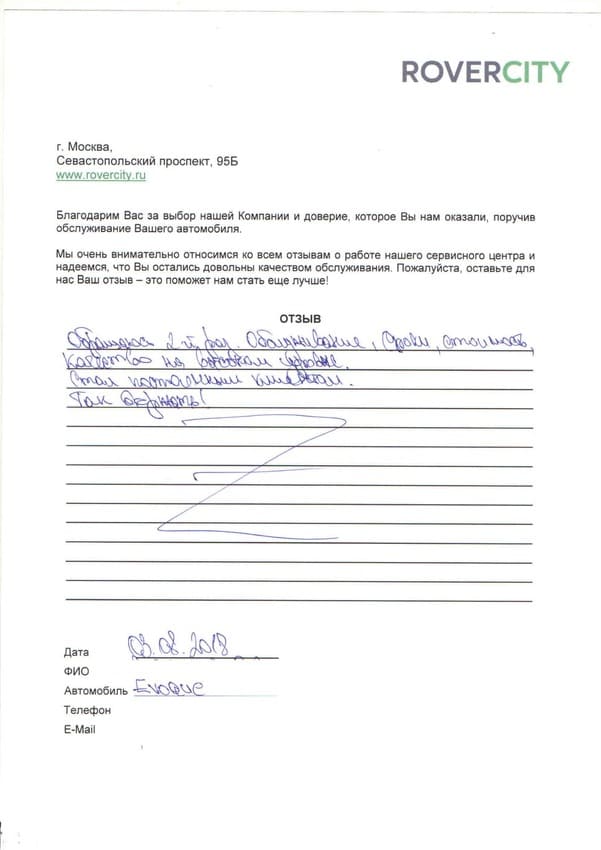 ROVERCITY
г. Москва,
Севастопольский проспект, 95Б
www.rovercity.ru
Благодарим Вас за выбор нашей Компании и доверие, которое Вы нам оказали, поручив
обслуживание Вашего автомобиля.
Мы очень внимательно относимся ко всем отзывам о работе нашего сервисного центра и
надеемся, что Вы остались довольны качеством обслуживания. Пожалуйста, оставьте для
нас Ваш отзыв – это поможет нам стать еще лучше!
ОТЗЫВ
Обращаюсь 2-й раз. Обслуживание, сроки, стоимость,
качество на высоком уровне.
Стал постоянным клиентом.
Так держать!
Дата 03.08.2018
ФИО
Автомобиль Evoque
Телефон
E-Mail